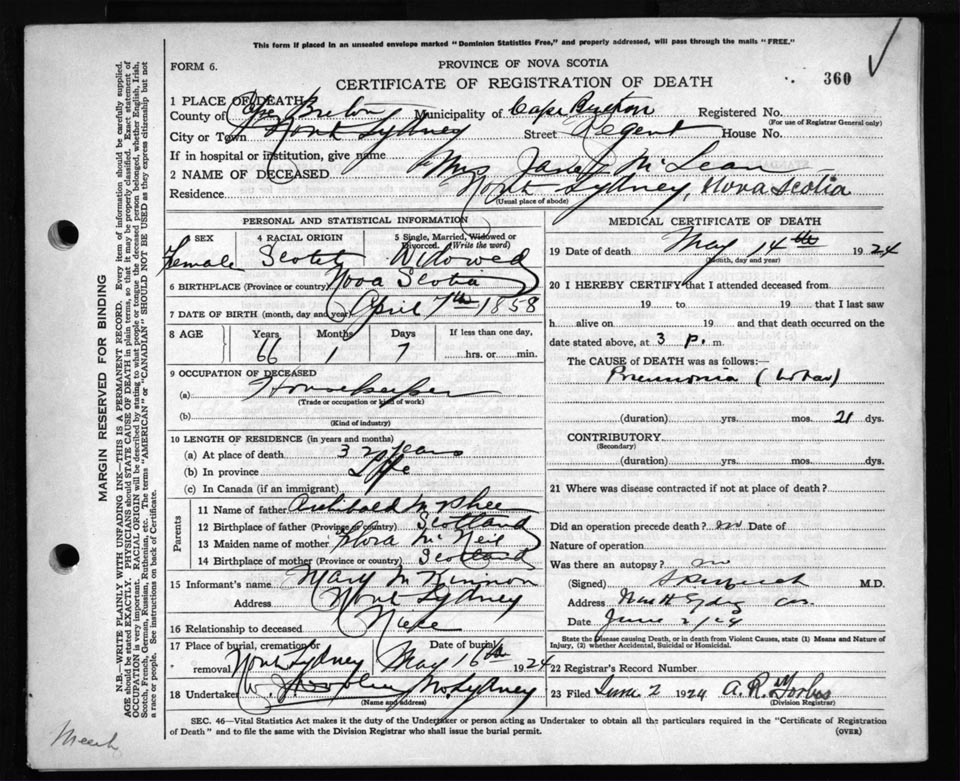 This form if placed in an unsealed envelope marked "Dominion Statistics Free," and properly addressed, will pass through the mails "FREE."
FORM 6.
PROVINCE OF NOVA SCOTIA
CERTIFICATE OF REGISTRATION OF DEATH
360
1 PLACE OF DEATH
County of Cape Breton Municipality of Cape Breton Registered No.
(For use of Registrar General only)
City or Town North Sydney Street Regent House No.
If in hospital or institution, give name
2 NAME OF DECEASED Mrs Jane McLean
Residence North Sydney, Nova Scotia
(Usual place of abode)
PERSONAL AND STATISTICAL INFORMATION
3 SEX 4 RACIAL ORIGIN 5 Single, Married, Widowed or Divorced. (Write the word)
Female Scotch Widowed
6 BIRTHPLACE (Province or country) Nova Scotia
7 DATE OF BIRTH (month, day and year) April 7th 1858
8 AGE Years Months Days If less than one day,
66 1 7 hrs. or min.
9 OCCUPATION OF DECEASED
(a) Housekeeper
(Trade or occupation or kind of work)
(b)
(Kind of industry)
10 LENGTH OF RESIDENCE (in years and months)
(a) At place of death 32 years
(b) In province Life
(c) In Canada (if an immigrant)
Parents
11 Name of father Archibald McPhee
12 Birthplace of father (Province or country) Scotland
13 Maiden name of mother Flora McNeil
14 Birthplace of mother (Province or country) Scotland
15 Informant's name Mary McKinnon
Address North Sydney
16 Relationship to deceased Niece
17 Place of burial, cremation or removal Date of burial
North Sydney May 16th 1924
18 Undertaker N. Sydney
(Name and address)
MEDICAL CERTIFICATE OF DEATH
19 Date of death May 14th 1924
(Month, day and year)
20 I HEREBY CERTIFY that I attended deceased from
19 to 19 that I last saw
h alive on 19 and that death occurred on
date stated above, at 3 p. m.
The CAUSE of DEATH was as follows:
Pneumonia (Lobar)
(duration) yrs. mos. 21 dys.
CONTRIBUTORY
(Secondary)
(duration) yrs. mos. dys.
21 Where was disease contracted if not at place of death?
Did an operation precede death? no Date of
Nature of operation
Was there an autopsy? no
(Signed) M.D.
Address North Sydney
Date June 2/24
State the Disease causing Death, or in death from Violent Causes, state (1) Means and Nature of Injury, (2) whether Accidental, Suicidal or Homicidal.
22 Registrar's Record Number
23 Filed June 2 1924 A. R. Forbes
(Division Registrar)
SEC. 46—Vital Statistics Act makes it the duty of the Undertaker or person acting as Undertaker to obtain all the particulars required in the "Certificate of Registration
of Death" and to file the same with the Division Registrar who shall issue the burial permit. (OVER)
MARGIN RESERVED FOR BINDING
N.B.—WRITE PLAINLY, WITH UNFADING INK—THIS IS A PERMANENT RECORD. Every item of information should be carefully supplied.
AGE should be stated EXACTLY. PHYSICIANS should STATE CAUSE OF DEATH in plain terms, so that it may be properly classified. Exact statement of
OCCUPATION is very important. RACIAL ORIGIN will be described by stating to what people or tongue the deceased person belonged, whether English, Irish,
Scotch, French, German, Russian, Ruthenian, etc. The terms "AMERICAN" or "CANADIAN" SHOULD NOT BE USED as they express citizenship but not
a race or people. See instructions on back of Certificate.